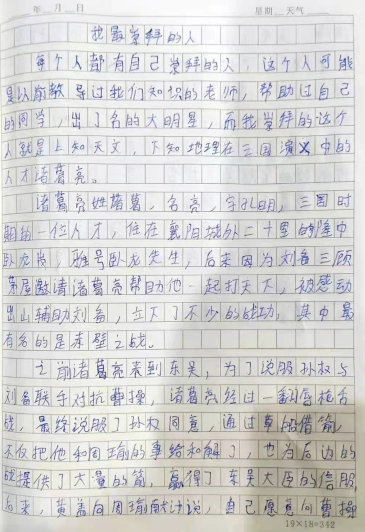 年 月 日 星期 天气
我最崇拜的人
每个人都有自己崇拜的人,这个人可能
是以前教导过我们知识的老师,帮助过自己
的同学,出了名的大明星,而我崇拜的这个
人就是上知天文,下知地理在三国演义中的
人才诸葛亮。
诸葛亮姓诸葛,名亮,字孔明,三国时
期的一位人才,住在襄阳城外二十里的隆中
卧龙岗,雅号卧龙先生,后来因为刘备三顾
茅屋邀请诸葛亮帮助他一起打天下,被感动
出山辅助刘备,立下了不少的战功,其中最
有名的是赤壁之战。
之前诸葛亮来到东吴,为了说服孙权与
刘备联手对抗曹操,诸葛亮经过一番唇枪舌
战,最终说服了孙权同意,通过草船借箭,
不仅把他和周瑜的事给和解了,也为后边的
战提供了大量的箭,赢得了东吴大臣的信服,
后来,黄盖向周瑜献计说,自己愿意向曹操
19×18=342